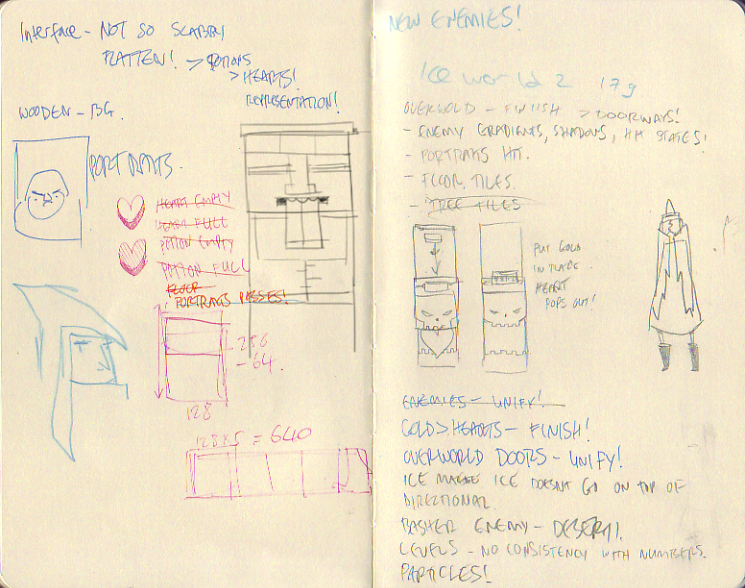 Interface - NOT SO SCABBY
FLATTEN! > POTIONS
> HEARTS!
REPRESENTATION!
WOODEN - BG.
PORTRAITS.
HEART EMPTY
HEART FULL
POTION EMPTY
POTION FULL
FLOOR
PORTRAITS PASSES!
256
- 64.
128
128x5 = 640
NEW ENEMIES!
Ice world 2 179
OVERWOLD - FINIISH > DOORWAYS!
- ENEMY GRADIENTS, SHADOWS, HIT STATES!
- PORTRAITS HIT.
- FLOOR TILES.
- TREE TILES
PUT GOLD
IN PLACE
HEART
POPS OUT!
ENEMIES - UNIFY!
GOLD > HEARTS - FINISH!
OVERWORLD DOORS - UNIFY!
ICE MAGIC ICE DOESNT GO ON TOP OF
DIRECTIONAL
BASHER ENEMY - DESERT!
LEVELS - NO CONSISTENCY WITH NUMBERS.
PARTICLES!